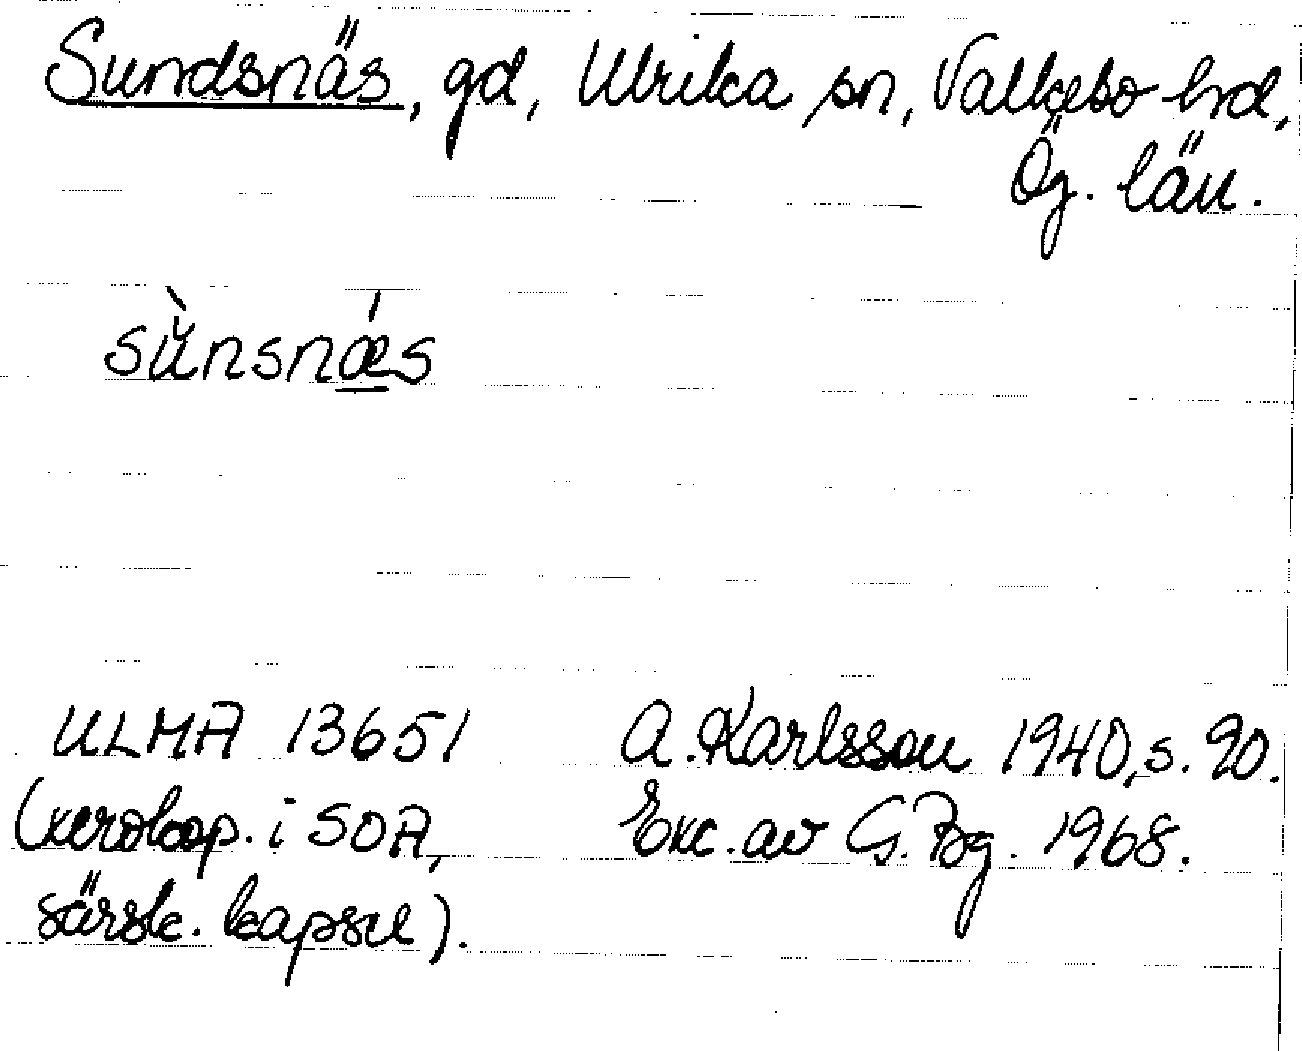 Sundsnäs, gd, Ulrika sn, Valkebo hd,
Ög. län.
sùnsnǽs
ULMA 13651 A. Karlsson 1940, s. 90.
(xerokop. i SOA, Exc. av G. Bg. 1968.
särsk. kapsel).